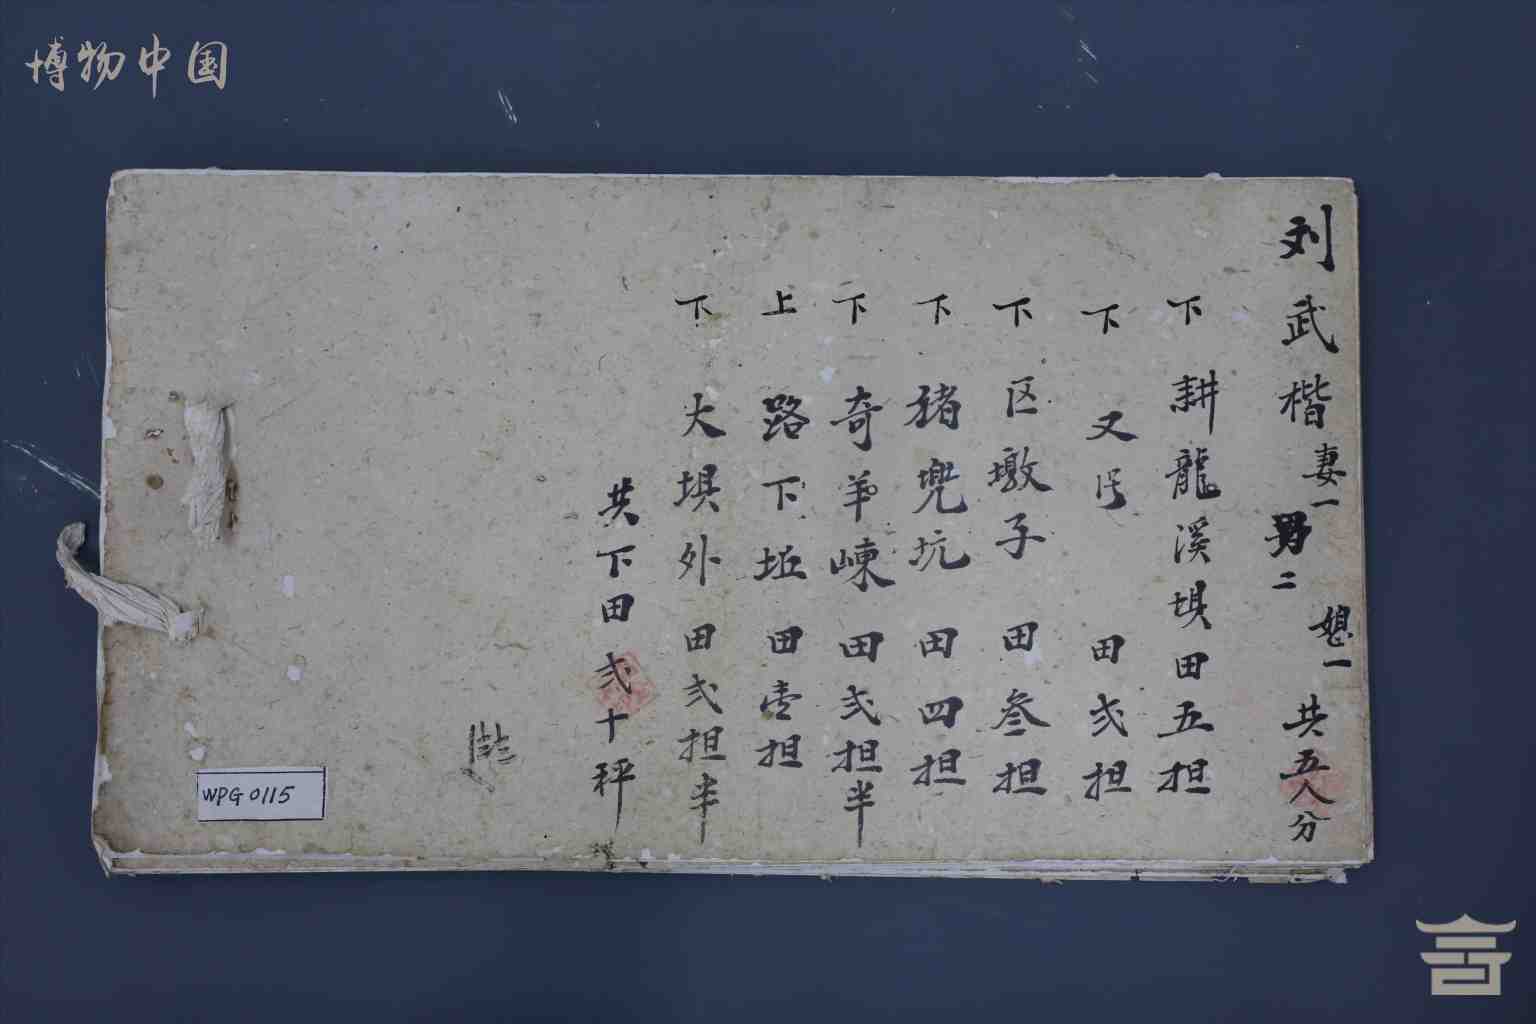 博物中国
刘武楷妻一男二媳一共五人分
下 耕龍溪埧田五担
下 又号 田弍担
下 区墩子 田叁担
下 豬兜坑 田四担
下 奇羊崠 田弍担半
上 路下坵 田壹担
下 大埧外 田弍担半
共下田弍十秤
WPG 0115